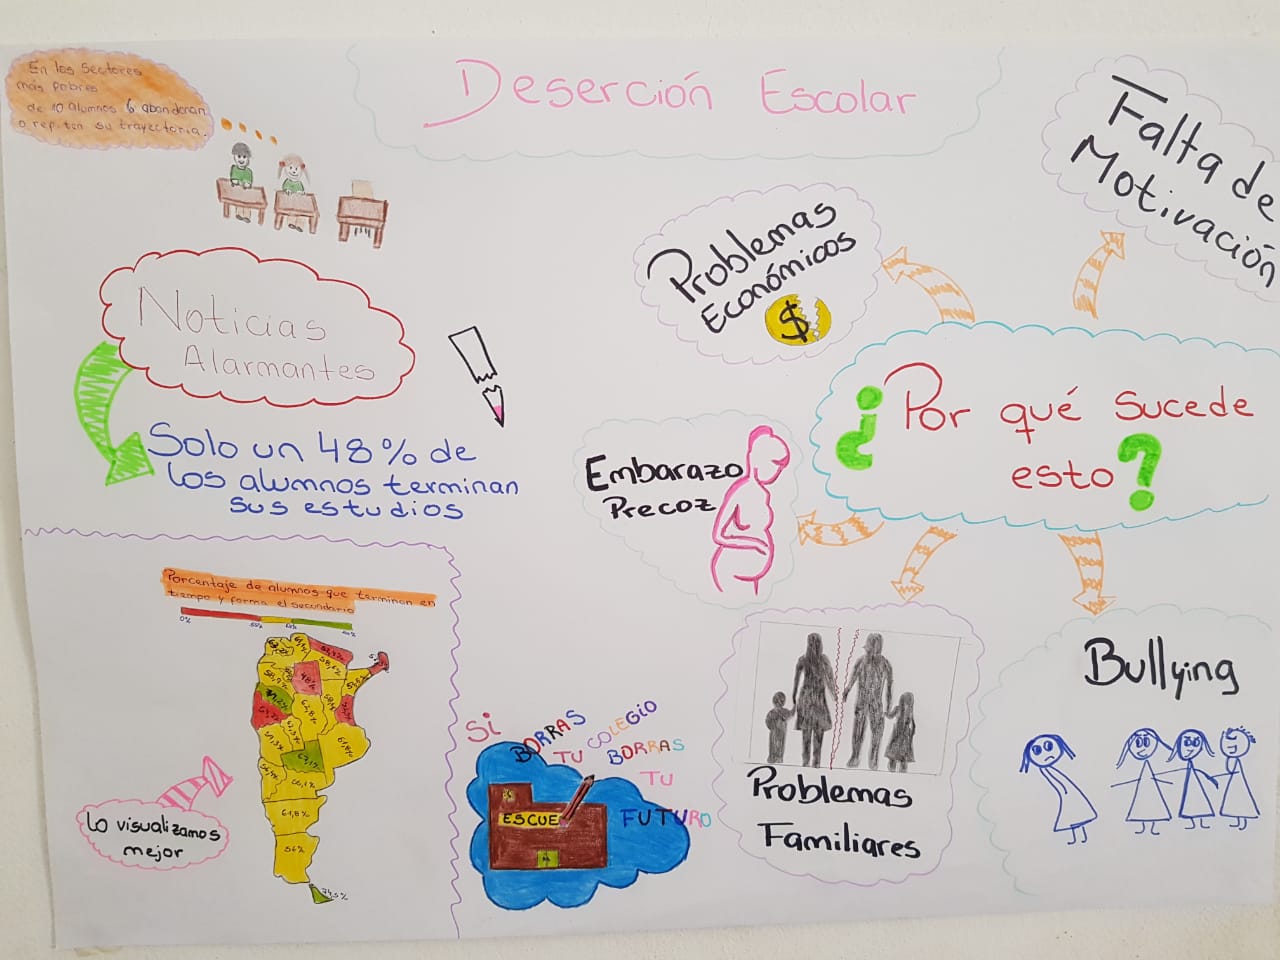 Deserción Escolar
En los Sectores
más pobres
de 10 alumnos 6 abandonan
o repiten su trayectoria.
Noticias
Alarmantes
Solo un 48% de
los alumnos terminan
sus estudios
Porcentaje de alumnos que terminan en
tiempo y forma el secundario
0%
61,4%
48%
62,8%
67,1%
61,8%
61,8%
56%
74,5%
Lo visualizamos
mejor
Si
BORRAS
TU COLEGIO
BORRAS
TU
FUTURO
ESCUE
Falta de
Motivación
Problemas
Económicos
$
¿Por qué sucede
esto?
Embarazo
Precoz
Problemas
Familiares
Bullying